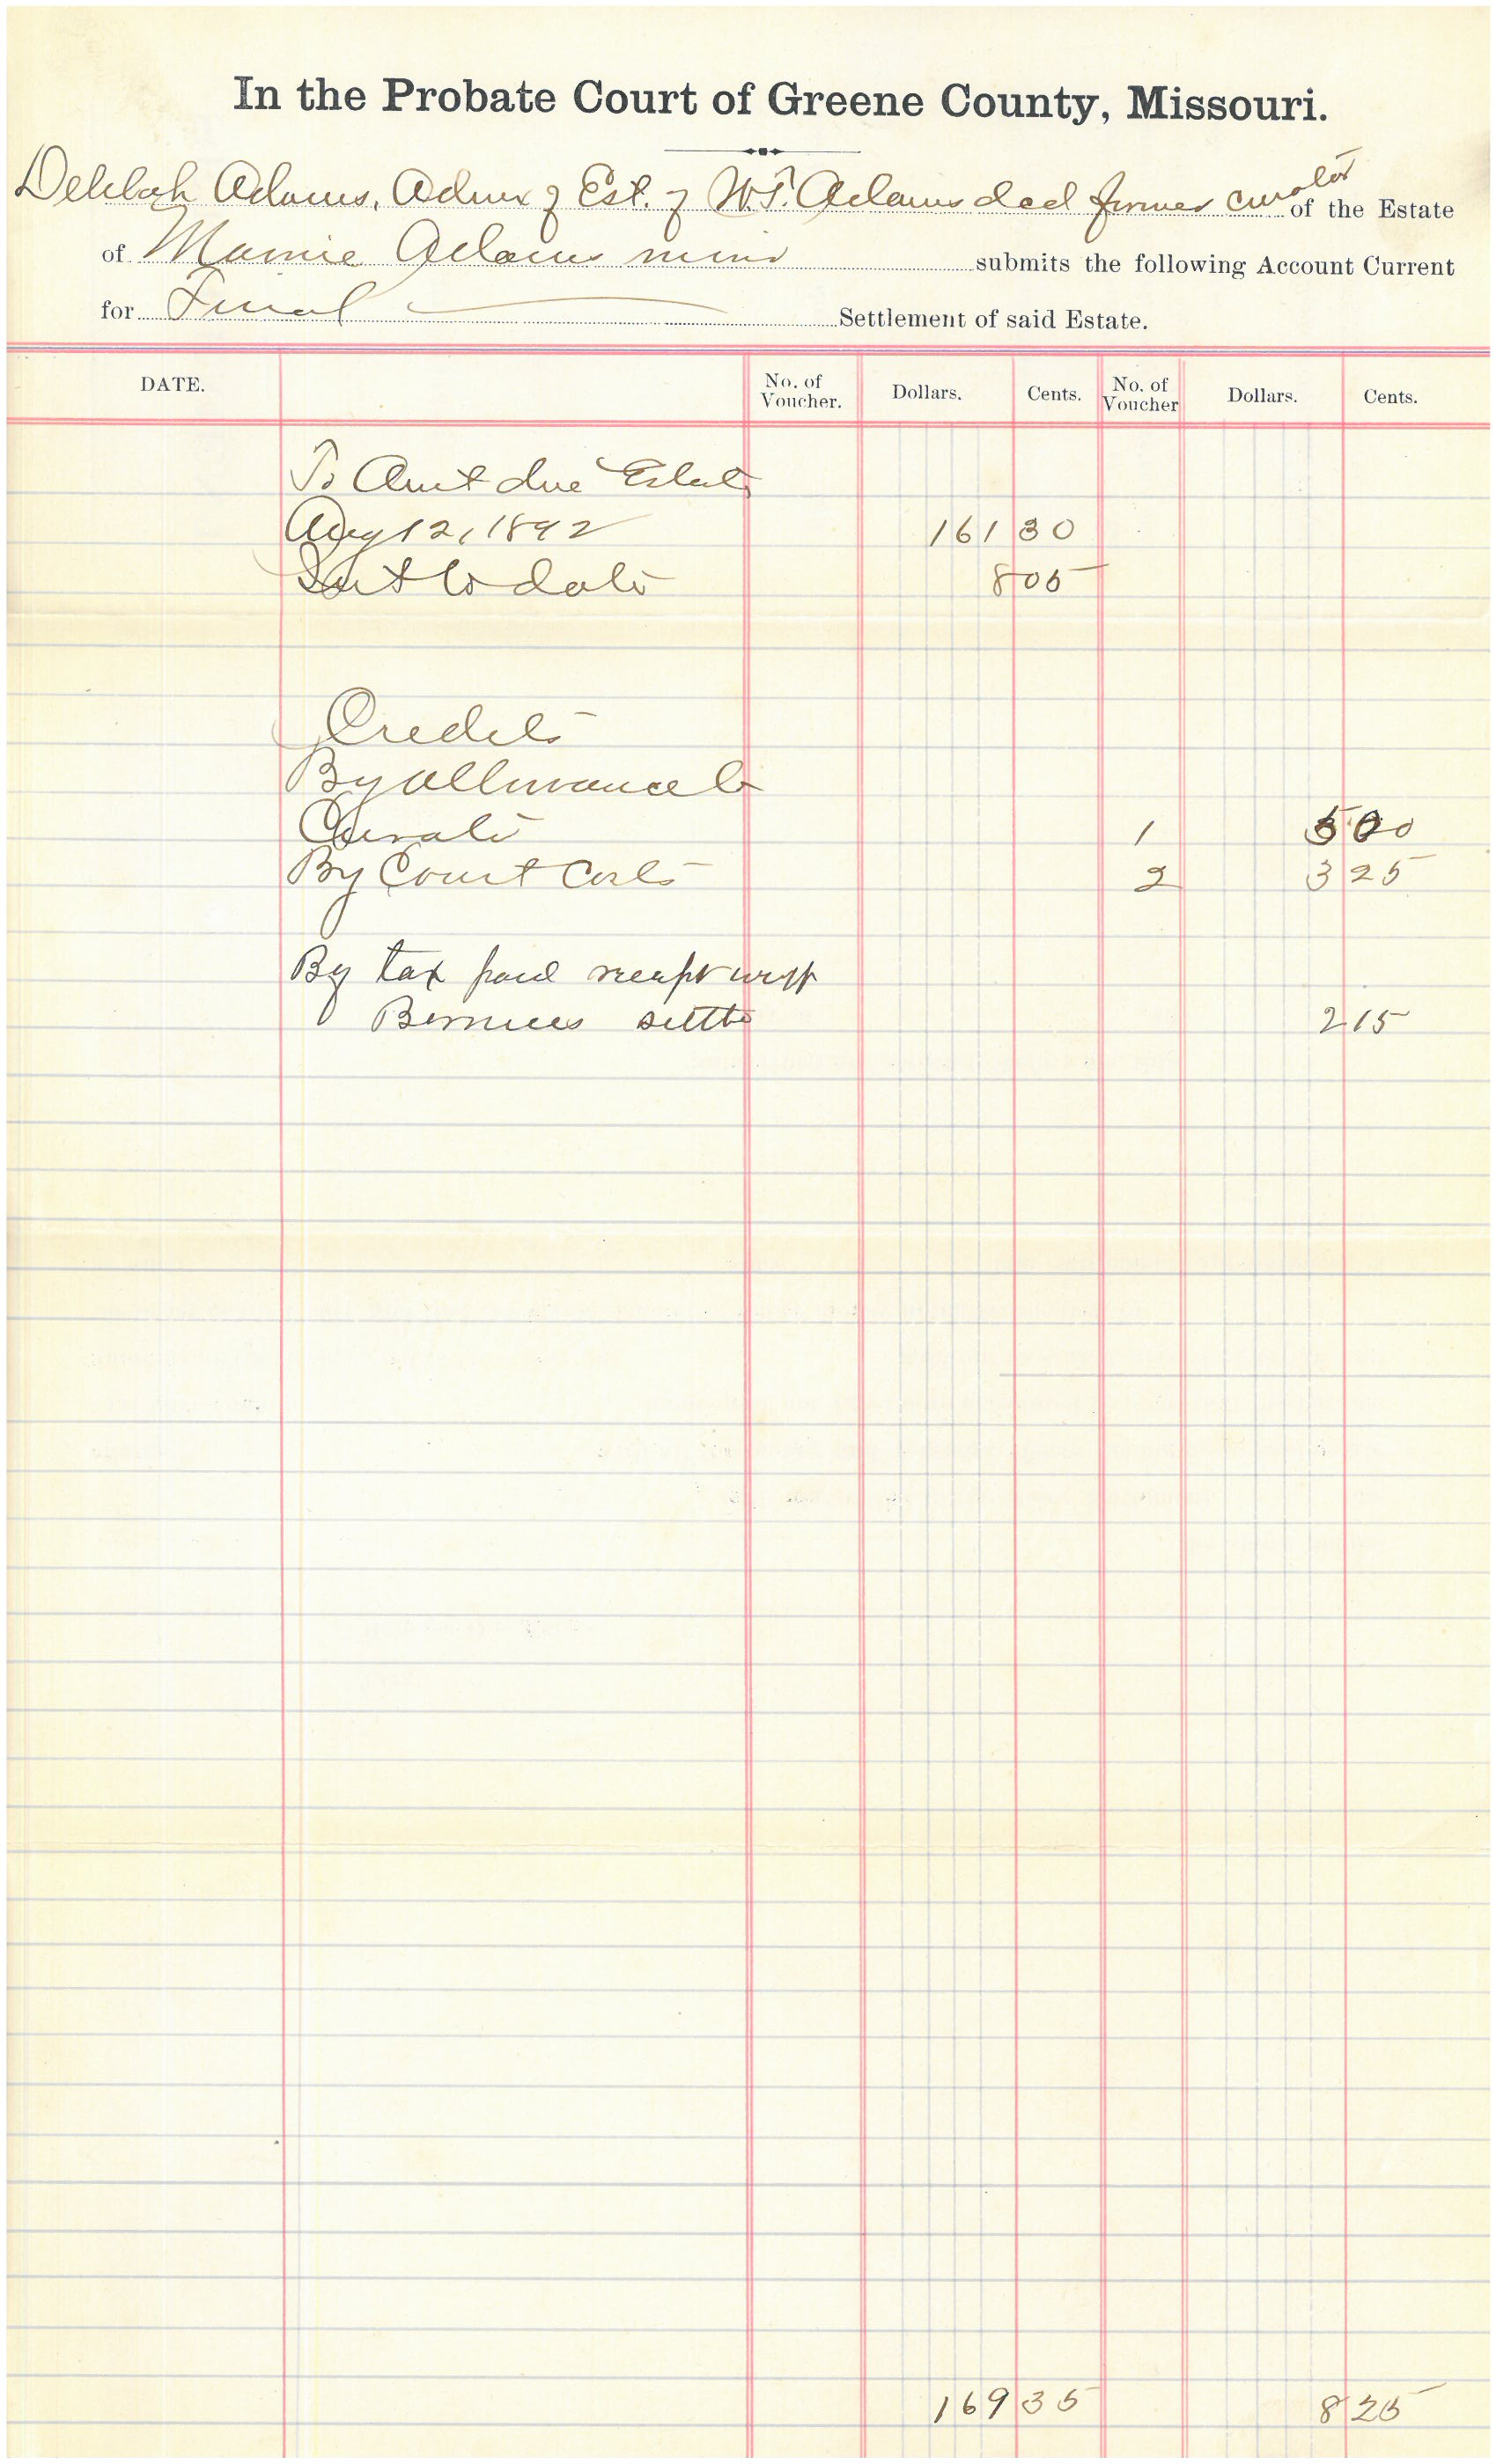 In the Probate Court of Greene County, Missouri.
Delilah Adams, Admx of Est. of W.T. Adams decd former curator of the Estate
of Mamie Adams minor submits the following Account Current
for Final Settlement of said Estate.
DATE. No. of Voucher. Dollars. Cents. No. of Voucher Dollars. Cents.
To Amt due Estate
Aug 12, 1892 161 30
Int to date 8 05
Credits
By Allowance to
Curator 1 5 00
By Court Costs 2 3 25
By tax paid receipt with
Bernices settle 2 15
169 35 8 25